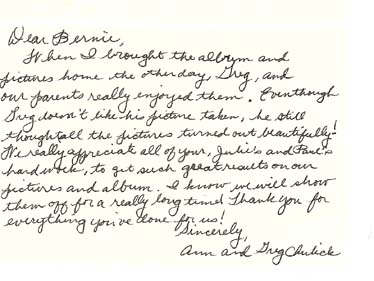 Dear Bernie,
When I brought the album and
pictures home the other day, Greg, and
our parents really enjoyed them. Eventhough
Greg doesn't like his picture taken, he still
thought all the pictures turned out beautifully!
We really appreciate all of your, Julie's and Paul's
hard work, to get such great results on our
pictures and album. I know we will show
them off for a really long time! Thank you for
everything you've done for us!
Sincerely,
Ann and Greg Chulick